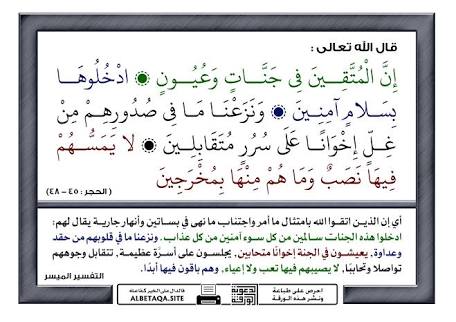 قال الله تعالى :
إِنَّ الْمُتَّقِينَ فِي جَنَّاتٍ وَعُيُونٍ ۝ ادْخُلُوهَا
بِسَلَامٍ آمِنِينَ ۝ وَنَزَعْنَا مَا فِي صُدُورِهِمْ مِنْ
غِلٍّ إِخْوَانًا عَلَى سُرُرٍ مُتَقَابِلِينَ ۝ لَا يَمَسُّهُمْ
فِيهَا نَصَبٌ وَمَا هُمْ مِنْهَا بِمُخْرَجِينَ
( الحجر : ٤٥ - ٤٨ )
أي إن الذين اتقوا الله بامتثال ما أمر واجتناب ما نهى في بساتين وأنهار جارية يقال لهم:
ادخلوا هذه الجنات سالمين من كل سوء آمنين من كل عذاب. ونزعنا ما في قلوبهم من حقد
وعداوة، يعيشون في الجنة إخوانًا متحابين، يجلسون على أسرّة عظيمة، تتقابل وجوههم
تواصلا وتحاببًا، لا يصيبهم فيها تعب ولا إعياء، وهم باقون فيها أبدًا.
التفسير الميسر
احرص على طباعة
ونشر هذه الورقة
فالدال على الخير كفاعله
ALBETAQA.SITE